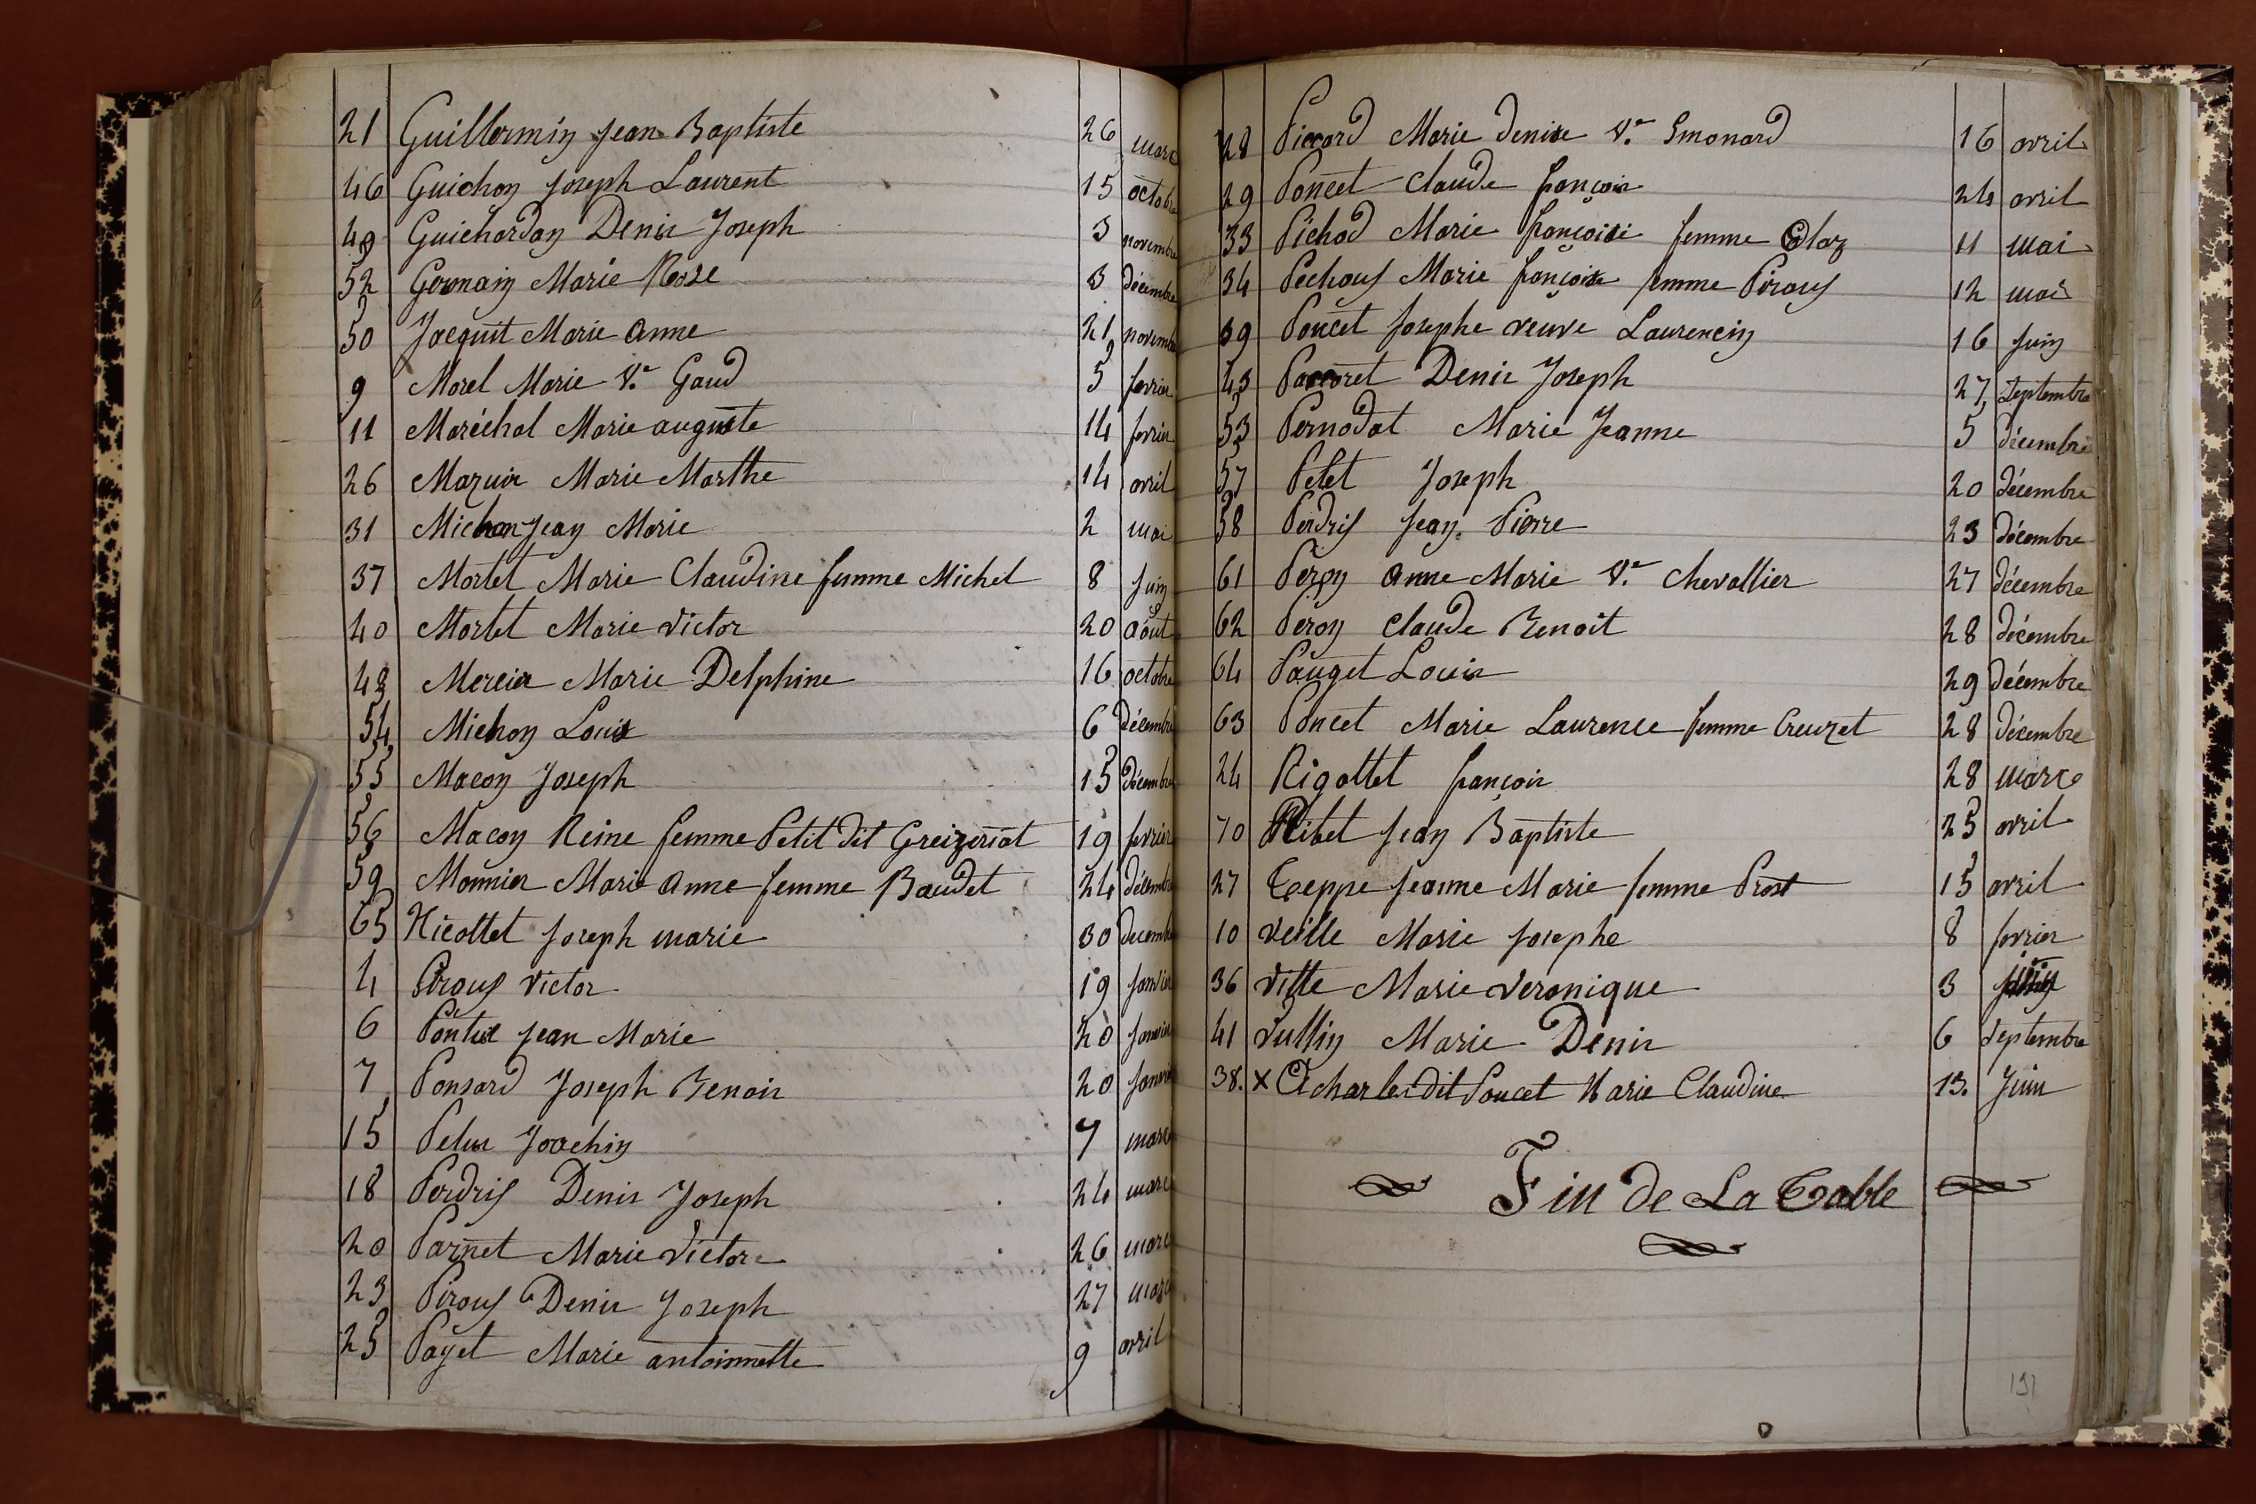 21 Guillermin Jean Baptiste 26 mars
46 Guichon Joseph Laurent 15 octobre
49 Guichardon Denis Joseph 3 novembre
52 Germain Marie Rose 3 décembre
50 Jacquit Marie Anne 21 novembre
9 Morel Marie Ve Gaud 5 fevrier
11 Maréchal Marie auguste 14 fevrier
26 Mazuir Marie Marthe 14 avril
31 Michon Jean Marie 2 mai
37 Mortet Marie Claudine femme Michel 8 Juin
40 Mortet Marie victor 20 août
48 Mercier Marie Delphine 16 octobre
54 Michon Louis 6 décembre
55 Macon Joseph 15 décembre
56 Macon Reine femme Petit dit Greizeriat 19 fevrier
59 Monnier Marie Anne femme Baudet 24 décembre
65 Nicollet Joseph marie 30 decembre
4 Pirous victor 19 janvier
6 Jean Marie 20 janvier
7 Ponsard Joseph Benoit 20 janvier
15 Pelus Joachin 7 mars
18 Perdrix Denis Joseph 24 mars
20 Parnet Marie Victor 26 mars
23 Piroux Denis Joseph 27 mars
25 Payet Marie antoinnette 9 avril
28 Piccard Marie denise Ve Emonard 16 avril
29 Poncet Claude françois 24 avril
33 Pichod Marie françoise femme Colaz 11 mai
34 Pechoux Marie françoise femme Piroux 12 mai
39 Poncet Josephe veuve Laurencin 16 Juin
43 Paccoret Denis Joseph 27 septembre
53 Pernodat Marie Jeanne 5 décembre
57 Pelet Joseph 20 décembre
58 Perdrix Jean Pierre 23 décembre
61 Peron Anne Marie Ve Chevallier 27 décembre
62 Peron Claude Benoit 28 décembre
64 Pauget Louis 29 décembre
63 Poncet Marie Laurence femme Creuzet 28 décembre
24 Rigottet françois 28 mars
70 Ribet Jean Baptiste 25 avril
27 Teppe Jeanne Marie femme Prost 15 avril
10 veille Marie Josephe 8 fevrier
36 vitte Marie veronique 3 juin
41 vullin Marie Denis 6 septembre
38. x Acharles dit Poncet Marie Claudine 13. Juin
Fin de La Table
191